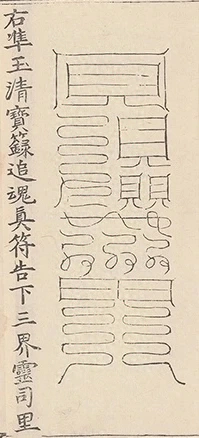 右準玉清寶籙追魂真符告下三界靈司里